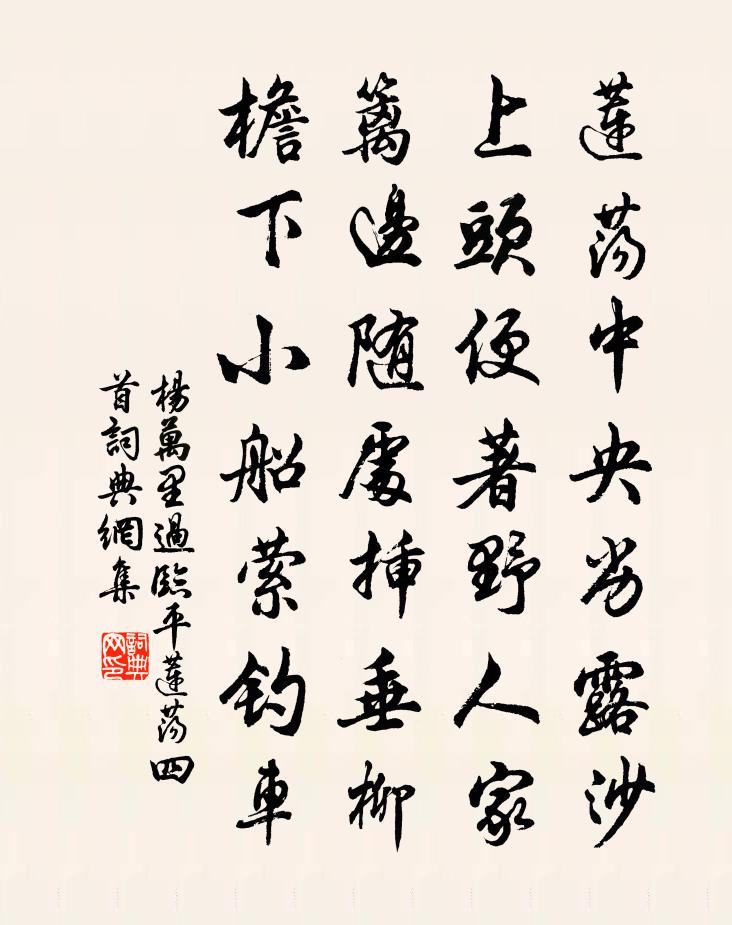 蓮蕩中央劣露沙
上頭便著野人家
篱邊随處挿垂柳
檐下小船萦釣車
楊萬里過臨平蓮蕩四
首詞典網集
詞典网印